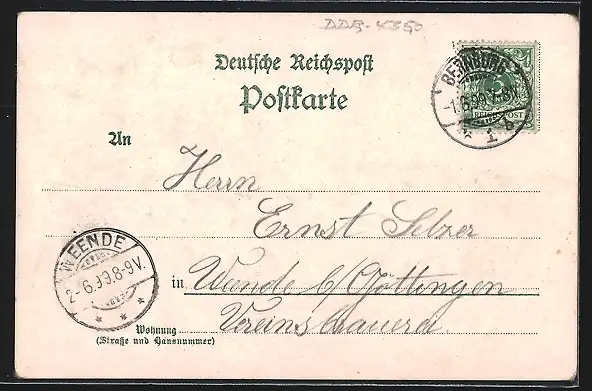 DDR-4350
Deutsche Reichspost
Postkarte
BERNBURG
REICHSPOST
An
Herrn
Ernst Selzer
WEENDE
2.6.99.8-9V.
in Weende b/Göttingen
Vereinsbrauerei
Wohnung
(Straße und Hausnummer)